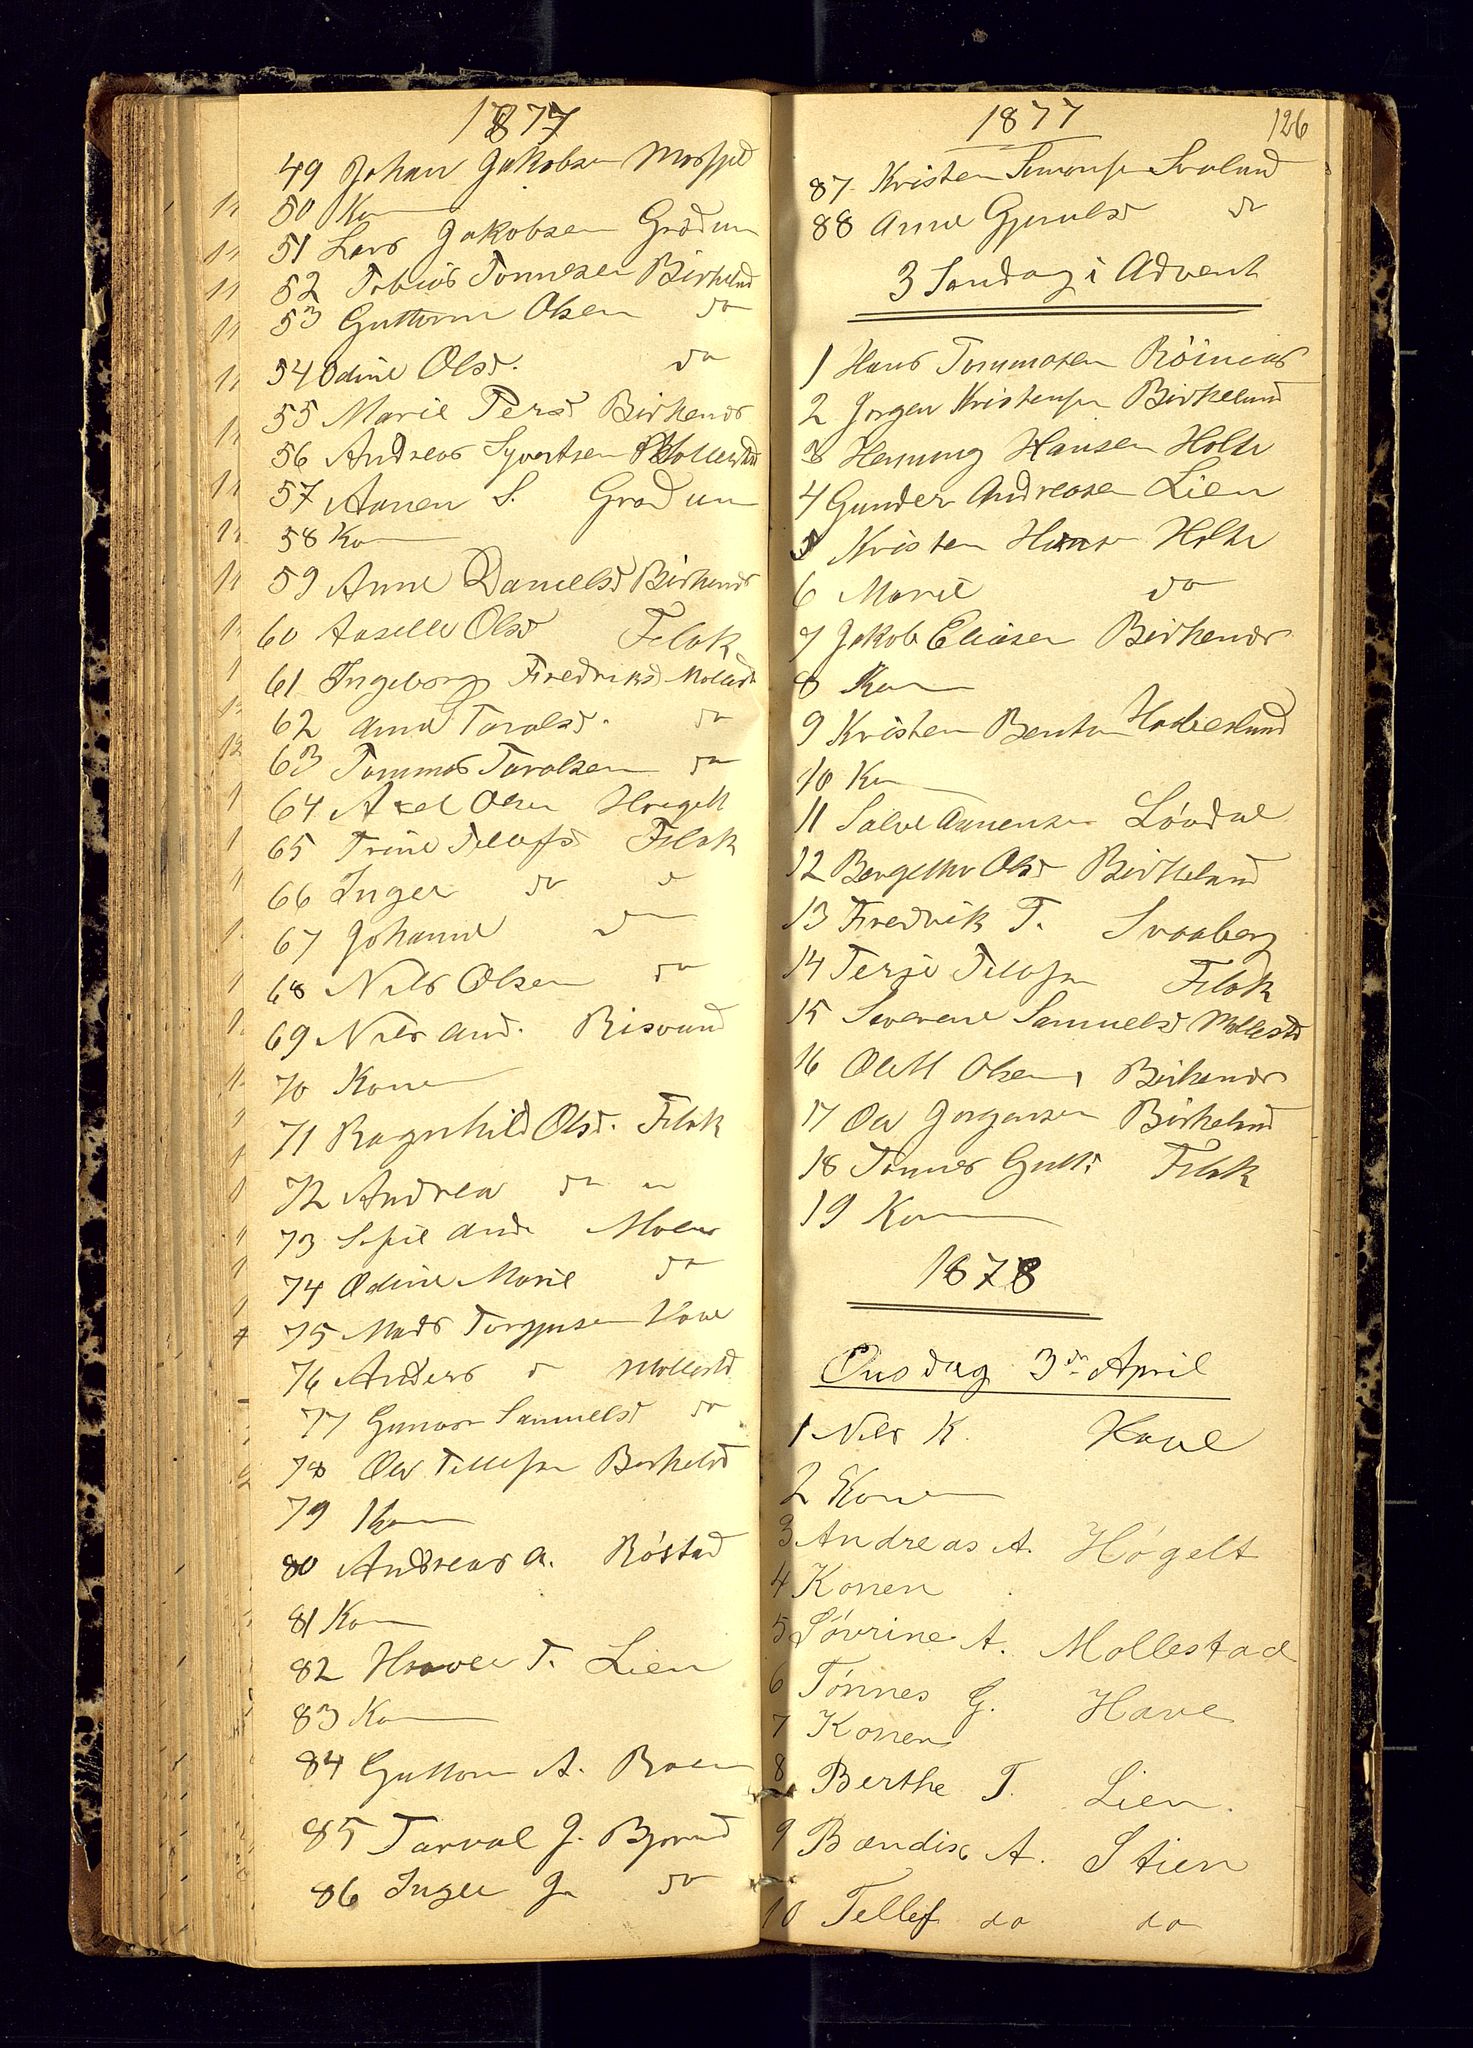 1877
49 Johan Jakobsen Mosfjel
50 Kon
51 Lars Jakobsen Grødum
52 Tobias Tønnesen Birkelnd
53 Guttorm Olsen do
54 Odine Olsd. do
55 Marie Persd Birkenes
56 Andreas Syvertsen Mollestad
57 Aanen S. Grødum
58 Kon
59 Anne Danielsd Birkenes
60 Aaselle Olsd Flak
61 Ingeborg Fredriksd Mollestd
62 Anne Taralsd. do
63 Tommas Taralsen do
64 Axel Olsen Høgelt
65 Trine Tellefsd Flak
66 Inger do d
67 Johanne do
68 Nils Olsen do
69 Nils And. Risvand
70 Konen
71 Ragnhild Olsd. Flak
72 Andrea do
73 Sofie And. Moen
74 Odine Marie do
75 Mads Torgjusen Have
76 Anders d Mollestd
77 Gunvor Samuelsd do
78 Ole Tellefsen Birkelnd
79 Kon
80 Andreas A. Røstad
81 Kon
82 T. Lien
83 Kon
84 Guttorm A. Roen
85 Tarval J.
86 Inger J. do
1877
126
87 Kristen Simonsen Svaland
88 Anne Gjeruls d do
3 Søndag i Advent
1 Hans Tommasen Röinaas
2 Jørgen Kristensen Birkeland
3 Henning Hansen Holte
4 Gunder Andreasen Lien
5 Kristen Hansen Holte
6 Marie do
7 Jakob Eliasen Birkenes
8 Kon
9 Kristen Bentsen
10 Kon
11 Salve Aanensen Løvdal
12 Bergethe Olsd Birkeland
13 Fredrik T. Svaaberg
14 Terje Tellefsen Flak
15 Severine Samuelsd Mollestd
16 Olsen Birkenes
17 Ole Jørgensen Birkelnd
18 Tønnes Gutt. Flak
19 Kon
1878
Onsdag 3die April
1 Nils K. Have
2 Konen
3 Andreas A. Høgelt
4 Konen
5 Sövrine A. Mollestad
6 Tønnes G. Have
7 Konen
8 Berthe T. Lien.
9 Bændix A. Stien
10 Tellef do do